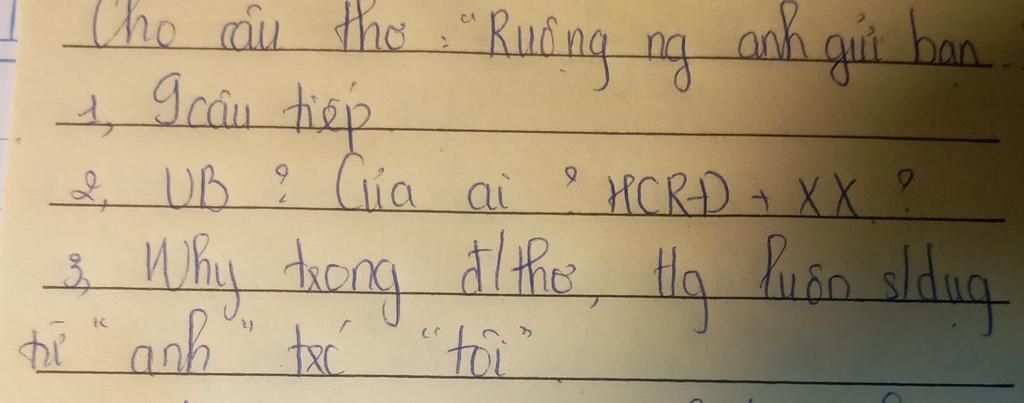 Cho câu thơ : "Ruộng ng anh gửi bạn
1, 9 câu tiếp
2, VB ? Của ai ? HCRĐ + XX ?
3, Why trong đ/thơ, t/g luôn s/dụg
từ "anh" trc "tôi"